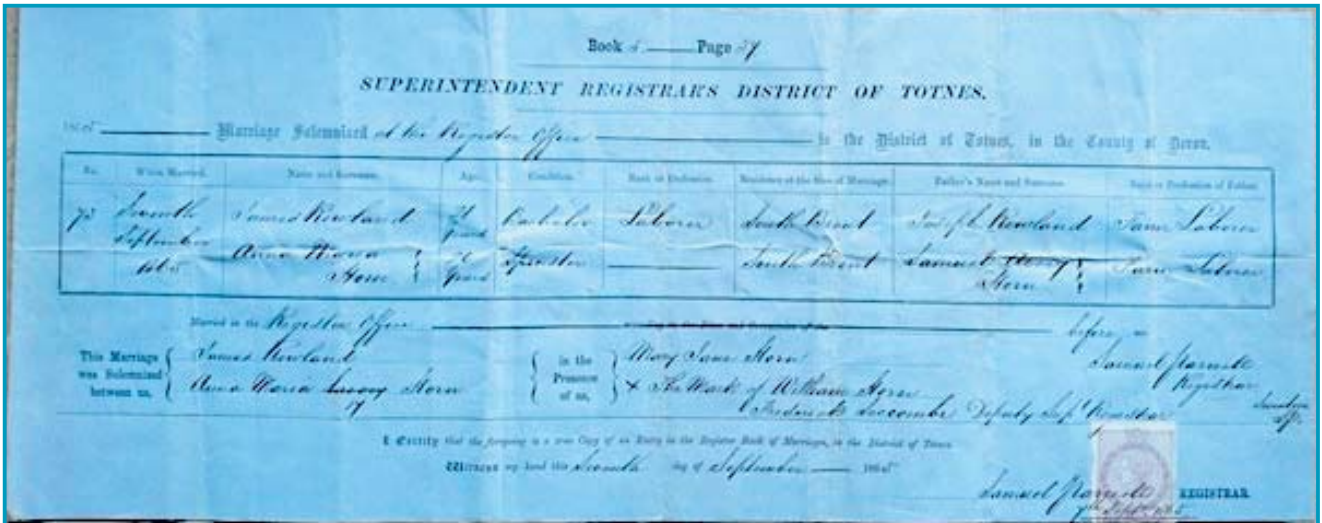 Book 5 Page 37
SUPERINTENDENT REGISTRAR'S DISTRICT OF TOTNES.
1865 Marriage Solemnized at the Register Office in the District of Totnes, in the County of Devon.
No. When Married. Name and Surname. Age. Condition. Rank or Profession. Residence at the time of Marriage. Father's Name and Surname. Rank or Profession of Father.
73 Seventh James Rowland Bachelor Laborer South Brent Rowland Farm Laborer
September Anna Maria Years Spinster South Brent Samuel Farm Laborer
1865 Horn Years Horn
Married in the Register Office before me
This Marriage was Solemnized between us, James Rowland in the Presence of us, Mary Jane Horn Samuel
Anna Maria Horn X The Mark of William Horn Registrar
Frederick Luscombe Deputy Supt Registrar
I Certify that the foregoing is a true Copy of an Entry in the Register Book of Marriages, in the District of Totnes
Witness my hand this Seventh day of September 1865
Samuel REGISTRAR
7th Sept 1865